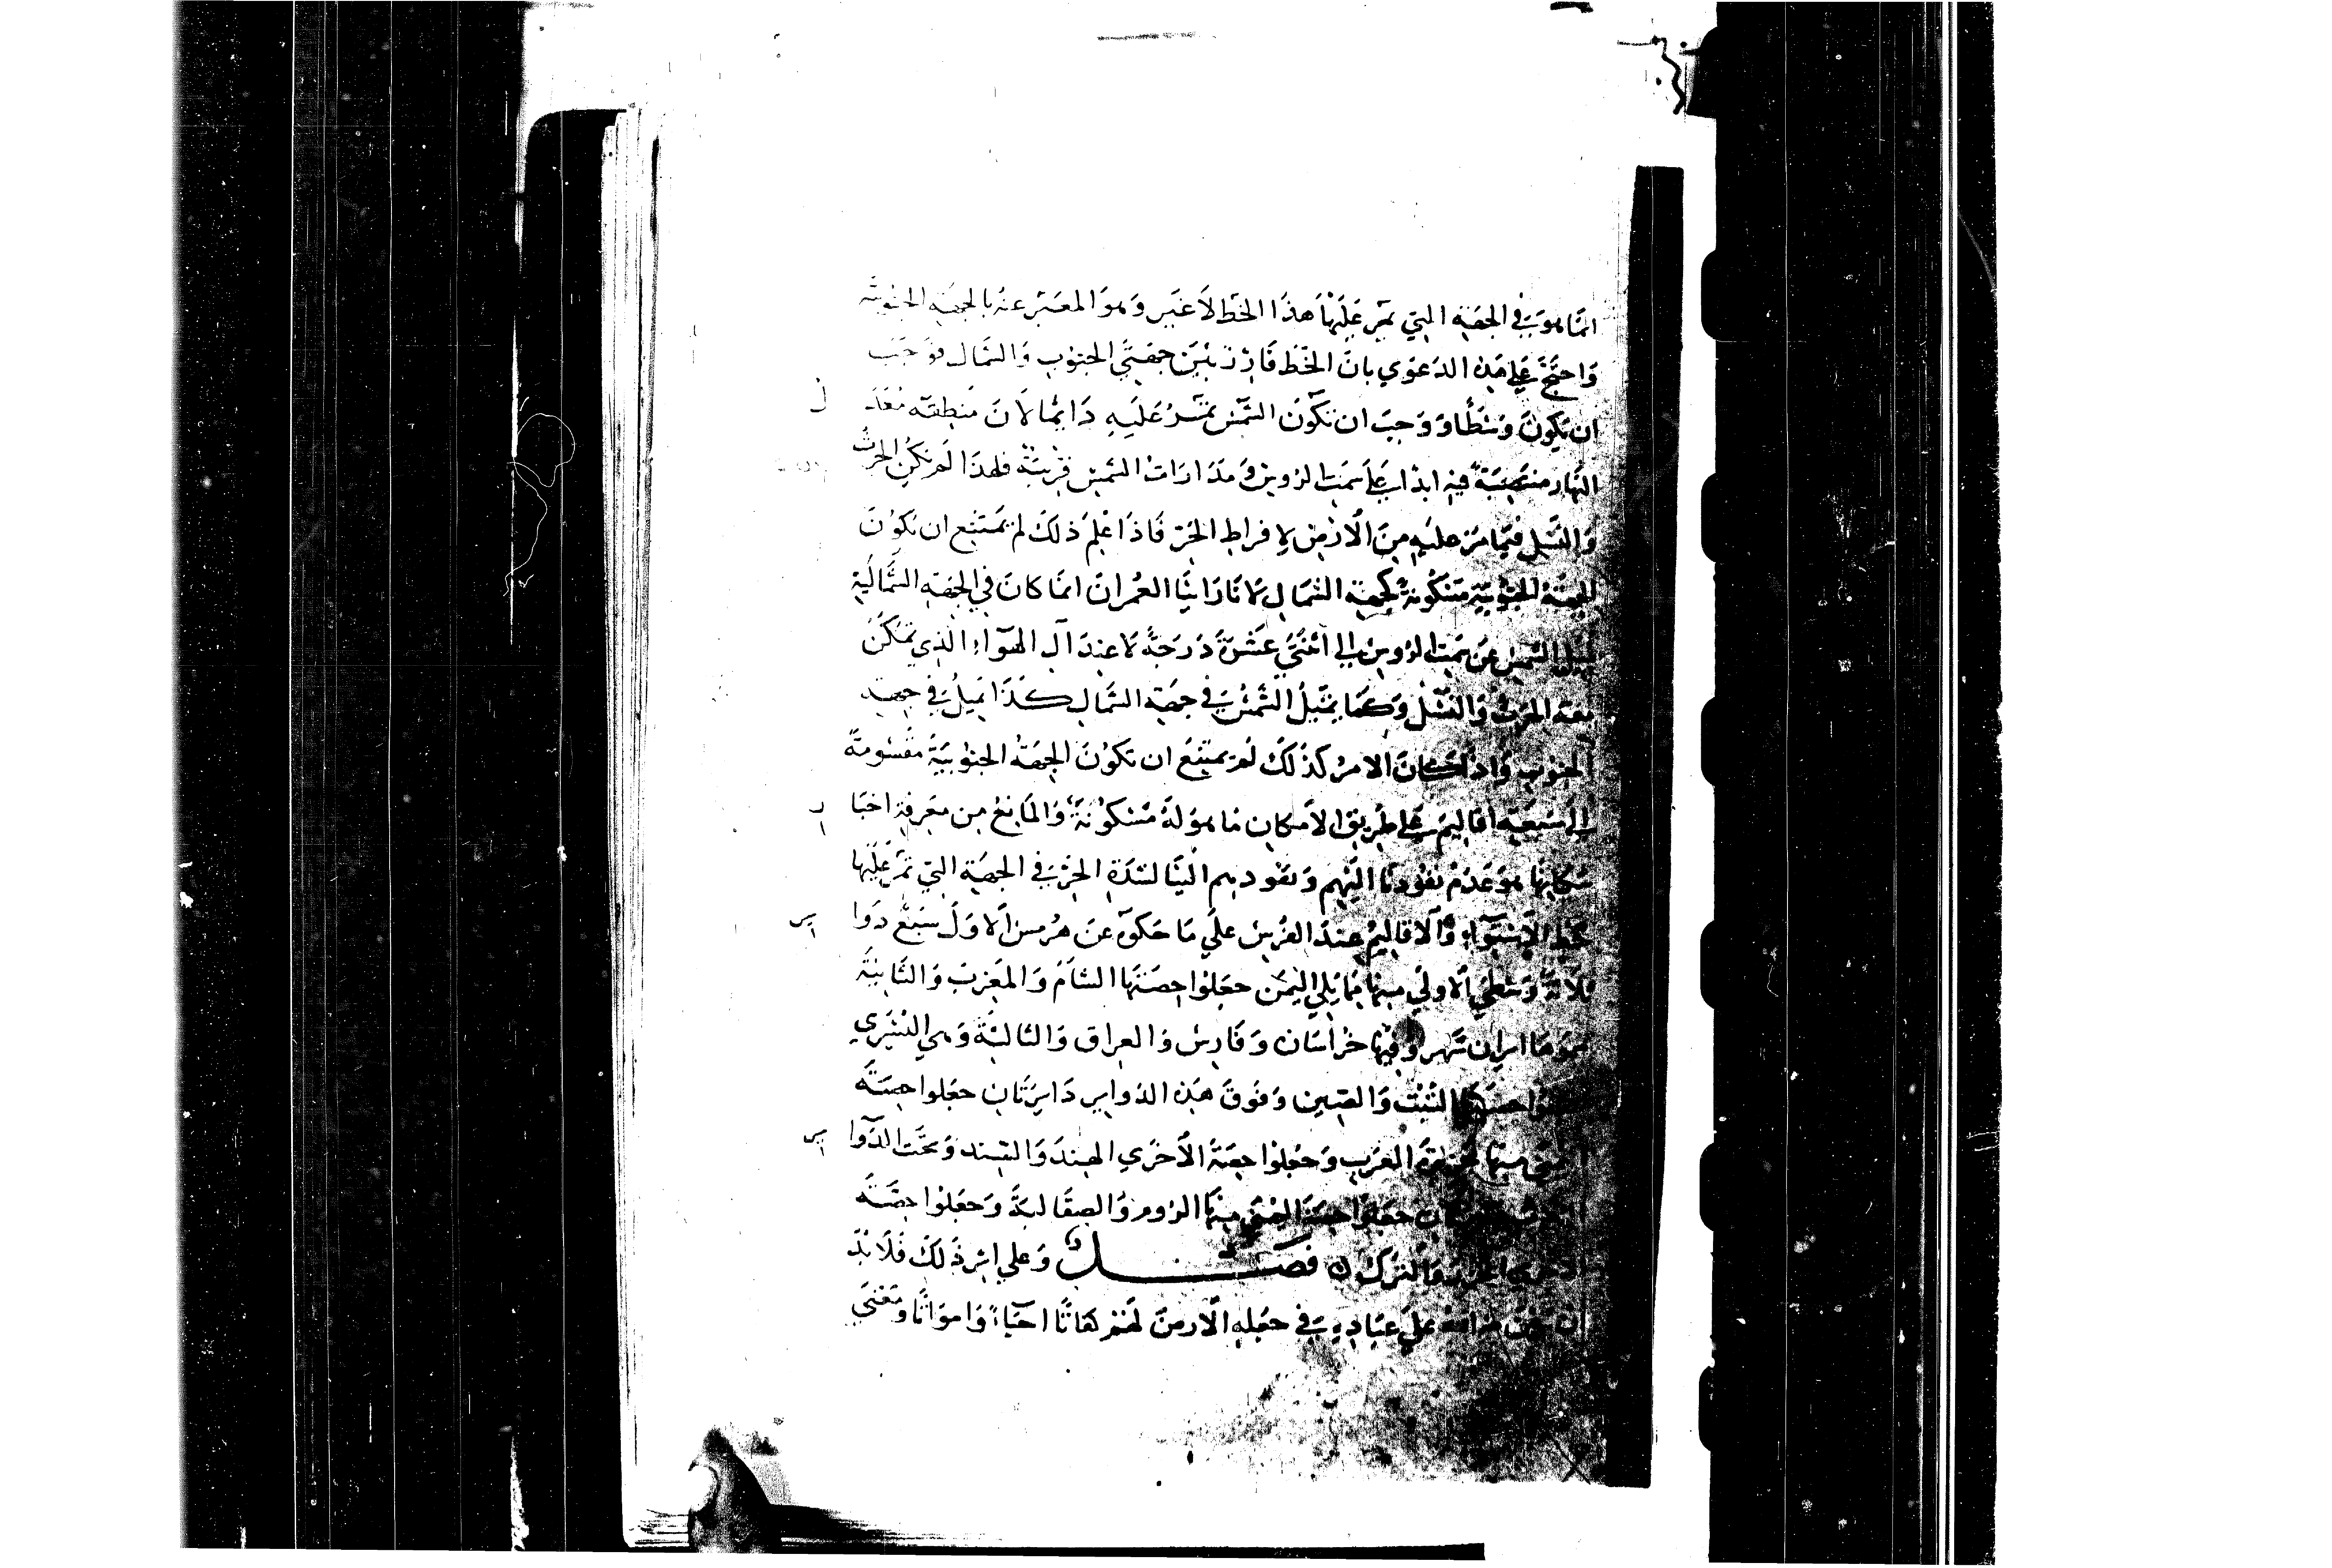 انما هو في الجهة التي يمر عليها هذا الخط لا غير وهو المعبر عنه بالجهة الجنوبية
واحتج علي هذه الدعوي بان الخط فارز بين جهتي الجنوب والشمال فوجب
ان يكون وسطا ووجب ان تكون الشمس تمر عليه دايما لان منطقه معدل
النهار منتصبة فيه ابدا علي سمت الروس ومدارات الشمس قريبة فلهذا لم يكن الحرث
والنسل فيما مر عليه من الارض لافراط الحر فاذا علم ذلك لم يمتنع ان تكون
الجهة الجنوبية مسكونة كجهة الشمال لانا راينا العمران انما كان في الجهة الشمالية
لميل الشمس عن سمت الروس الي اثنتي عشرة درجة لاعتدال الهواء الذي تمكن
معه الحرث والنسل وكما يميل الشمس في جهة الشمال كذا يميل في جهة
الجنوب واذا كان الامر كذلك لم يمتنع ان تكون الجهة الجنوبية مقسومة
الي سبعة اقاليم علي طريق الامكان ماهولة مسكونة والمانع من معرفة اخبار
سكانها هو عدم نفوذنا اليهم ونفوذهم الينا لشدة الحر في الجهة التي تمر عليها
خط الاستواء والاقاليم عند الفرس علي ما حكوه عن هرمس الاول سبع دواير
ثلاثة وسطي الاولي منها مما يلي اليمن جعلوا حصتها الشام والمغرب والثانية
سموها ايران شهر وفيها خراسان وفارس والعراق والثالثة وهي اليسري
حصتها التبت والصين وفوق هذه الدواير دايرتان جعلوا حصة
منها جزيرة العرب وجعلوا حصة الاخري الهند والسند وتحت الدواير
جعلوا حصة اليمني منها الروم والصقالبة وجعلوا حصة
الخزر والترك فصل وعلي اثر ذلك فلا بد
ان علي عباده في جعله الارض لهم كفاتا احياء وامواتا ومعني